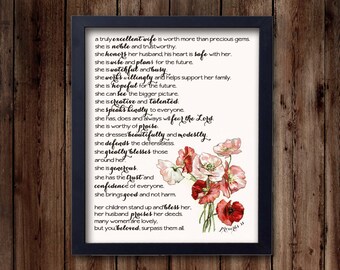 a truly excellent wife is worth more than precious gems.
she is noble and trustworthy.
she honors her husband, his heart is safe with her.
she is wise and plans for the future.
she is watchful and busy.
she works willingly and helps support her family.
she is hopeful for the future.
she can see the bigger picture.
she is creative and talented.
she speaks kindly to everyone.
she has, does and always will fear the Lord.
she is worthy of praise.
she dresses beautifully and modestly.
she defends the defenseless.
she greatly blesses those
around her.
she is generous.
she has the trust and
confidence of everyone.
she brings good and not harm.
her children stand up and bless her.
her husband praises her deeds.
many women are lovely,
but you, beloved, surpass them all
Proverbs 31